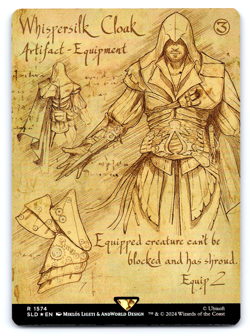 Whispersilk Cloak
3
Artifact - Equipment
Equipped creature can't be
blocked and has shroud.
Equip 2
R 1574
© Ubisoft
SLD ★ EN MIKLÓS LIGETI & ANDWORLD DESIGN ™ & © 2024 Wizards of the Coast